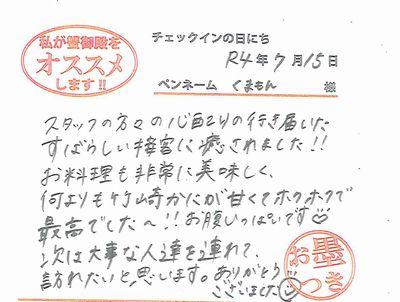 私が蟹御殿を
オススメ
します!!
チェックインの日にち
R4年7月15日
ペンネーム くまもん 様
スタッフの方々の心配りの行き届いた
すばらしい接客に癒されました!!
お料理も非常に美味しく、
何よりも竹崎かにが甘くてホクホクで
最高でした〜!!お腹いっぱいです
次は大事な人達を連れて、
訪れたいと思います。ありがとう
ございました
お墨
つき